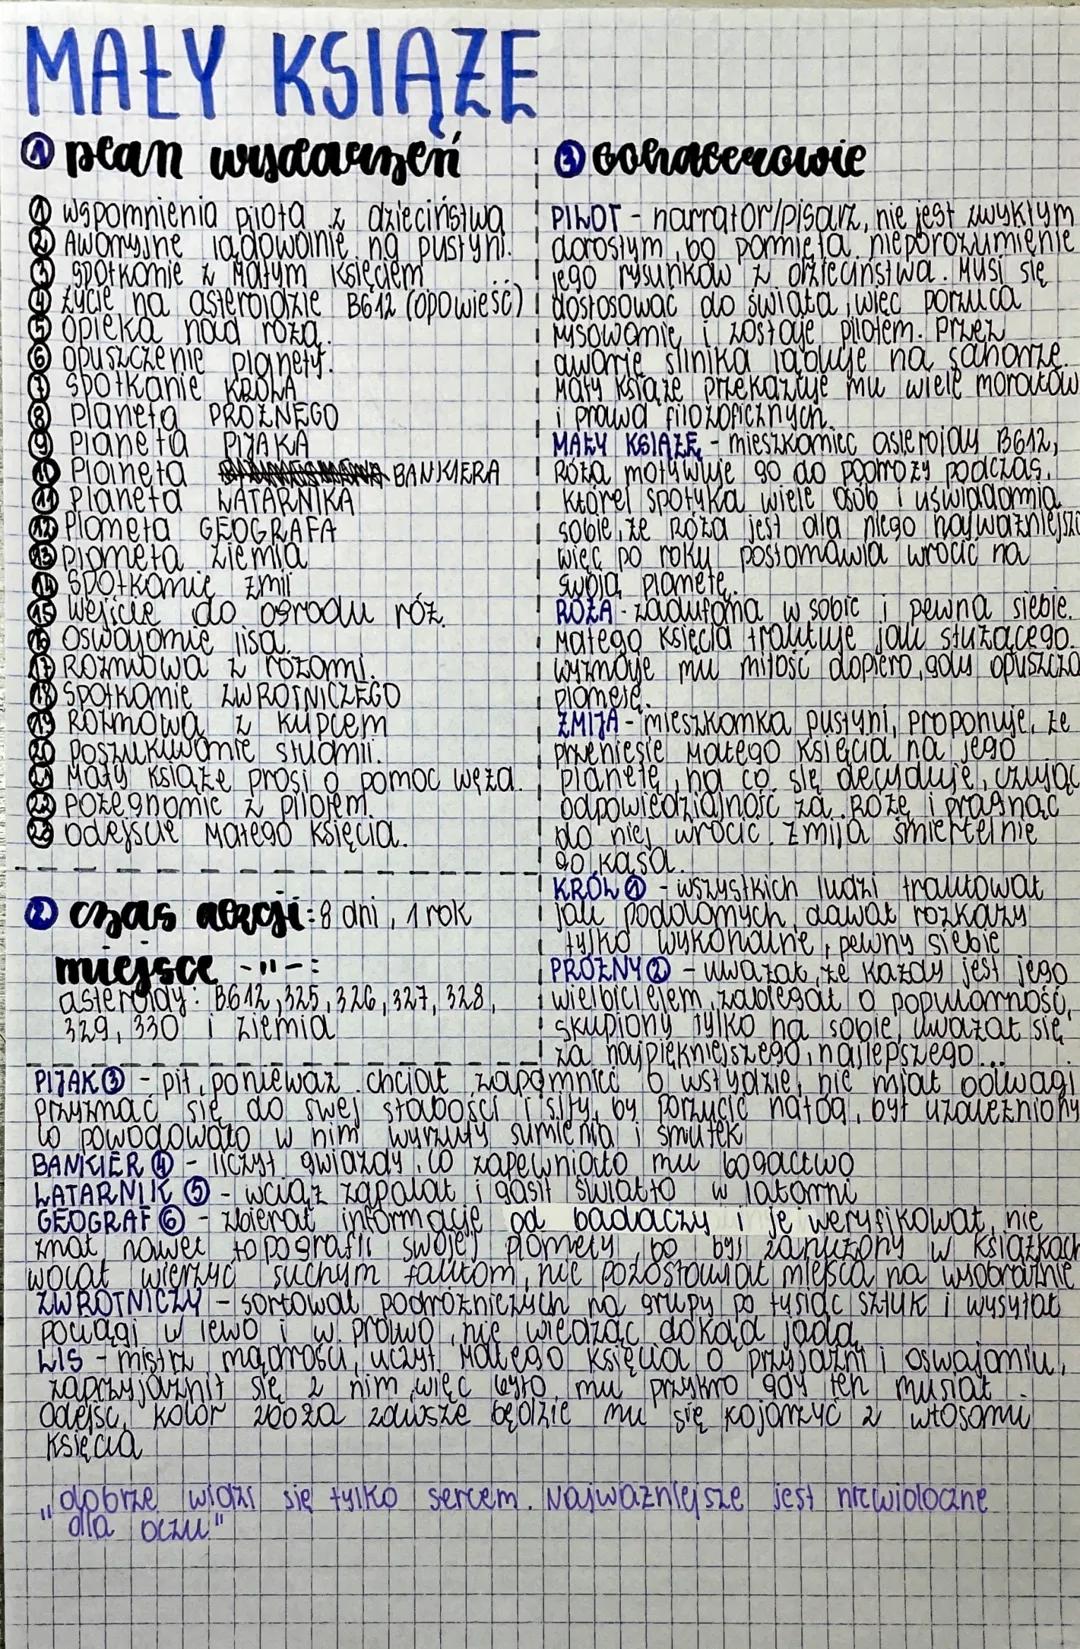 MAŁY KSIĄŻĘ
① plan wydarzeń
① wspomnienia pilota z dzieciństwa
② Awaryjne lądowanie na pustyni.
③ spotkanie z Małym Księciem
④ życie na asteroidzie B612 (opowieść)
⑤ opieka nad różą.
⑥ opuszczenie planety.
⑦ spotkanie KRÓLA
⑧ planeta PRÓŻNEGO
⑨ planeta PIJAKA
⑩ Planeta BANKIERA
⑪ planeta LATARNIKA
⑫ Planeta GEOGRAFA
⑬ planeta ziemia
⑭ spotkanie żmii
⑮ wejście do ogrodu róż.
⑯ Oswajanie lisa.
⑰ Rozmowa z różami.
⑱ spotkanie ZWROTNICZEGO
⑲ Rozmowa z kupcem
⑳ poszukiwanie studni.
㉑ Mały książę prosi o pomoc węża.
㉒ pożegnanie z pilotem.
㉓ odejście Małego Księcia.
② czas akcji: 8 dni, 1 rok
miejsce -"-:
asteroidy: B612, 325, 326, 327, 328,
329, 330 i ziemia
③ bohaterowie
PILOT - narrator/pisarz, nie jest zwykłym
dorosłym, bo pamięta nieporozumienie
jego rysunków z dzieciństwa. Musi się
dostosować do świata, więc porzuca
rysowanie i zostaje pilotem. Przez
awarię silnika ląduje na saharze.
Mały książę przekazuje mu wiele morałów
i prawd filozoficznych.
MAŁY KSIĄŻĘ - mieszkaniec asteroidy B612,
Róża motywuje go do podróży podczas,
której spotyka wiele osób i uświadamia
sobie, że Róża jest dla niego najważniejsza
więc po roku postanawia wrócić na
swoją planetę.
RÓŻA - zadufana w sobie i pewna siebie.
Małego Księcia traktuje jak służącego.
wyznaje mu miłość dopiero, gdy opuszcza
planetę.
ŻMIJA - mieszkanka pustyni, proponuje, że
przeniesie Małego Księcia na jego
planetę, na co się decyduje, czując
odpowiedzialność za Różę i pragnąc
do niej wrócić. Żmija śmiertelnie
go kąsa.
KRÓL ① - wszystkich ludzi traktował
jak poddanych, dawał rozkazy
tylko wykonalne, pewny siebie
PRÓŻNY ② - uważał, że każdy jest jego
wielbicielem, zabiegał o popularność,
skupiony tylko na sobie, uważał się
za najpiękniejszego, najlepszego...
PIJAK ③ - pił, ponieważ chciał zapomnieć o wstydzie, nie miał odwagi
przyznać się do swej słabości i siły, by porzucić nałóg, był uzależniony
co powodowało w nim wyrzuty sumienia i smutek
BANKIER ④ - liczył gwiazdy, co zapewniało mu bogactwo
LATARNIK ⑤ - wciąż zapalał i gasił światło w latarni
GEOGRAF ⑥ - zbierał informacje od badaczy i je weryfikował, nie
znał nawet topografii swojej planety, bo był zanurzony w książkach
wolał wierzyć suchym faktom, nie pozostawiał miejsca na wyobraźnię
ZWROTNICZY - sortował podróżniczych na grupy po tysiąc sztuk i wysyłał
pociągi w lewo i w prawo, nie wiedząc dokąd jadą
LIS - mistrz mądrości, uczył Małego Księcia o przyjaźni i oswajaniu,
zaprzyjaźnił się z nim, więc było mu przykro gdy ten musiał
odejść, kolor zboża zawsze będzie mu się kojarzyć z włosami
księcia
"dobrze widzi się tylko sercem. Najważniejsze jest niewidoczne
dla oczu."